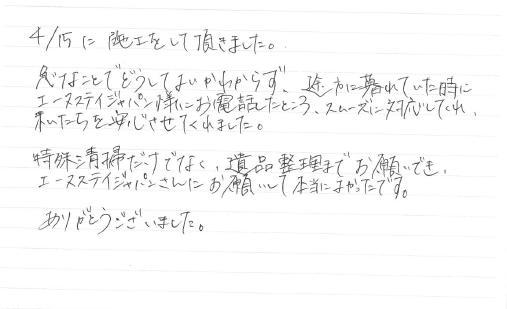 4/15に施工をして頂きました。
急なことでどうしてよいかわからず、途方に暮れていた時に
エースステイジャパン様にお電話したところ、スムーズに対応してくれ、
私たちを安心させてくれました。
特殊清掃だけでなく、遺品整理までお願いでき、
エースステイジャパンさんにお願いして本当によかったです。
ありがとうございました。